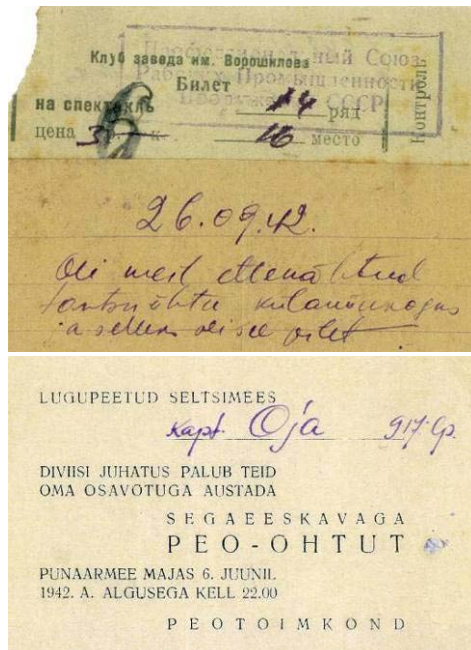 Клуб завода им. Ворошилова
Профессиональный Союз
Рабочих Промышленности
СССР
Билет
на спектакль 14 ряд
цена 3 р. к. 16 место
Контроль
26.09.42.
Oli meil ettenähtud
tantsuõhtu
ja selleks oli see pilet
LUGUPEETUD SELTSIMEES
kapt. Oja 917. lp.
DIVIISI JUHATUS PALUB TEID
OMA OSAVÕTUGA AUSTADA
SEGAEESKAVAGA
PEO-OHTUT
PUNAARMEE MAJAS 6. JUUNIL
1942. A. ALGUSEGA KELL 22.00
PEOTOIMKOND